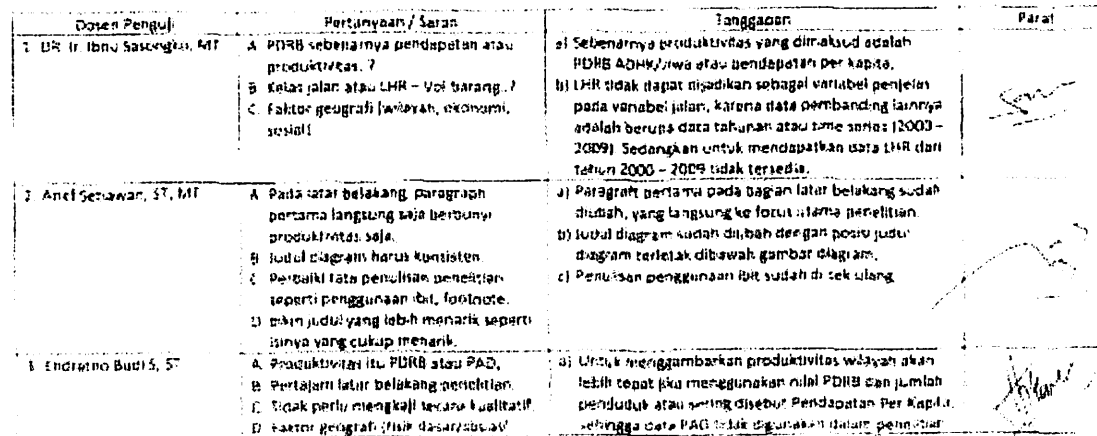 Dosen Penguji Pertanyaan / Saran Tanggapan Paraf
1. DR. Ir. Ibnu Sasongko, MT
A. PDRB sebenarnya pendapatan atau
produktivitas..?
B. Kelas jalan atau LHR – Vol barang..?
C. Faktor geografi (wilayah, ekonomi,
sosial)
a) Sebenarnya produktivitas yang dimaksud adalah
PDRB ADHK/Jiwa atau pendapatan Per kapita.
b) LHR tidak dapat dijadikan sebagai variabel penjelas
pada variabel jalan, karena data pembanding lainnya
adalah berupa data tahunan atau time series (2000 –
2009). Sedangkan untuk mendapatkan data LHR dari
tahun 2000 – 2009 tidak tersedia.
2. Arief Setiawan, ST, MT
A. Pada latar belakang, paragraph
pertama langsung saja berbunyi
produktivitas saja.
B. Judul diagram harus konsisten.
C. Perbaiki tata penulisan penelitian
seperti penggunaan ibit, footnote.
D. Bikin judul yang lebih menarik seperti
isinya yang cukup menarik.
a) Paragraft pertama pada bagian latar belakang sudah
diubah, yang langsung ke focus utama penelitian.
b) Judul diagram sudah diubah dengan posisi judul
diagram terletak dibawah gambar diagram.
c) Penulisan penggunaan ibit sudah di cek ulang
3. Endratno Budi S, ST
A. Produktivitas itu PDRB atau PAD.
B. Pertajam latar belakang penelitian.
C. Tidak perlu mengkaji secara kualitatif.
D. Faktor geografi (fisik dasar/
a) Untuk menggambarkan produktivitas wilayah akan
lebih tepat jika menggunakan nilai PDRB dan jumlah
penduduk atau sering disebut Pendapatan Per Kapita,
sehingga data PAD tidak digunakan dalam penelitian